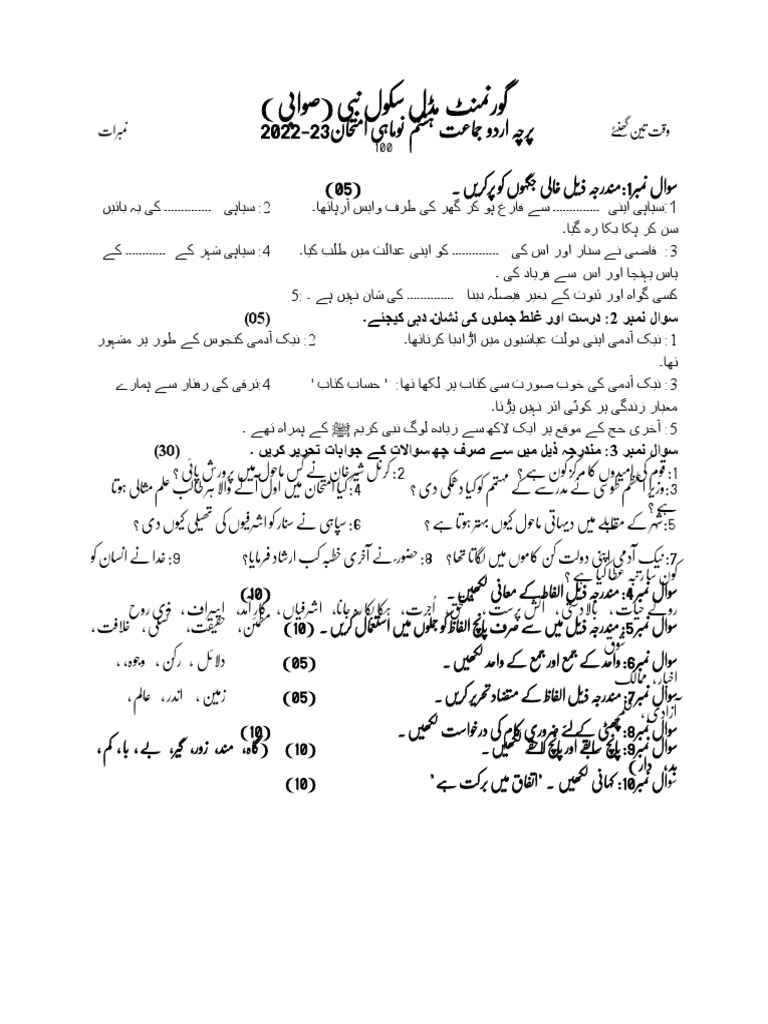 گورنمنٹ مڈل سکول نبی (صوابی)
وقت تین گھنٹے پرچہ اردو جماعت ہشتم نوماہی امتحان 2022-23 نمبرات
100
سوال نمبر1:مندرجہ ذیل خالی جگہوں کو پر کریں ۔ (05)
1:سپاہی اپنی .............. سے فارغ ہو کر گھر کی طرف واپس آرہاتھا۔ 2: سپاہی .............. کی یہ باتیں
سن کر ہکا بکا رہ گیا۔
3: قاضی نے سنار اور اس کی .............. کو اپنی عدالت میں طلب کیا۔ 4: سپاہی شہر کے ............ کے
پاس پہنچا اور اس سے فریاد کی ۔
کسی گواہ اور ثبوت کے بغیر فیصلہ دینا .............. کی شان نہیں ہے ۔ :5
سوال نمبر 2: درست اور غلط جملوں کی نشان دہی کیجئے۔ (05)
1: نیک آدمی اپنی دولت عیاشیوں میں اڑادیا کرتاتھا۔ 2: نیک آدمی کنجوس کے طور پر مشہور
تھا۔
3: نیک آدمی کی خوب صورت سی کتاب پر لکھا تھا: ' حساب کتاب ' 4:ترقی کی رفتار سے ہمارے
معیار زندگی پر کوئی اثر نہیں پڑتا۔
5: آخری حج کے موقع پر ایک لاکھ سے زیادہ لوگ نبی کریم ﷺ کے ہمراہ تھے ۔
سوال نمبر 3: مندرجہ ذیل میں سے صرف چھ سوالات کے جوابات تحریر کریں ۔ (30)
1: قوم کی امیدوں کا مرکز کون ہے ؟ 2: کرنل شیر خان نے کس ماحول میں پرورش پائی ؟
3:وزیر اعظم طوسی نے مدرسے کے مہتمم کو کیا دھمکی دی ؟ 4: کیا امتحان میں اول آنے والا ہر طالب علم مثالی ہوتا
ہے ؟
5:شہر کے مقابلے میں دیہاتی ماحول کیوں بہتر ہوتا ہے ؟ 6: سپاہی نے سنار کو اشرفیوں کی تھیلی کیوں دی ؟
7: نیک آدمی اپنی دولت کن کاموں میں لگاتا تھا؟ 8: حضور نے آخری خطبہ کب ارشاد فرمایا؟ 9: خدا نے انسان کو
کون سا رتبہ عطا کیا ہے ؟
سوال نمبر4: مندرجہ ذیل الفاظ کے معانی لکھیں ۔ (10)
روئے حیات، بالادستی، آتش پرست، مستحق، اُجرت، ہکا بکا رہ جانا، اشرفیاں، کارآمد، اسراف، ذی روح
سوال نمبر5: مندرجہ ذیل میں سے صرف پانچ الفاظ کو جملوں میں استعمال کریں ۔ (10) مطمئن، حقیقت، تسلی، خلافت،
شوق
سوال نمبر6: واحد کے جمع اور جمع کے واحد لکھیں ۔ (05) دلائل ، رکن ، وجوہ، ،
اخبار، ممالک
سوال نمبر7: مندرجہ ذیل الفاظ کے متضاد تحریر کریں ۔ (05) زمین ، اندر، عالم ،
آزادی،
سوال نمبر8: چھٹی کے لئے ضروری کام کی درخواست لکھیں ۔ (10)
سوال نمبر9: پانچ سابقے اور پانچ لاحقے لکھیں ۔ (10) (گاہ، مند، زور، گیر، بے، با، کم،
بد، دار)
سوال نمبر10: کہانی لکھیں ۔ ’اتفاق میں برکت ہے‘ (10)